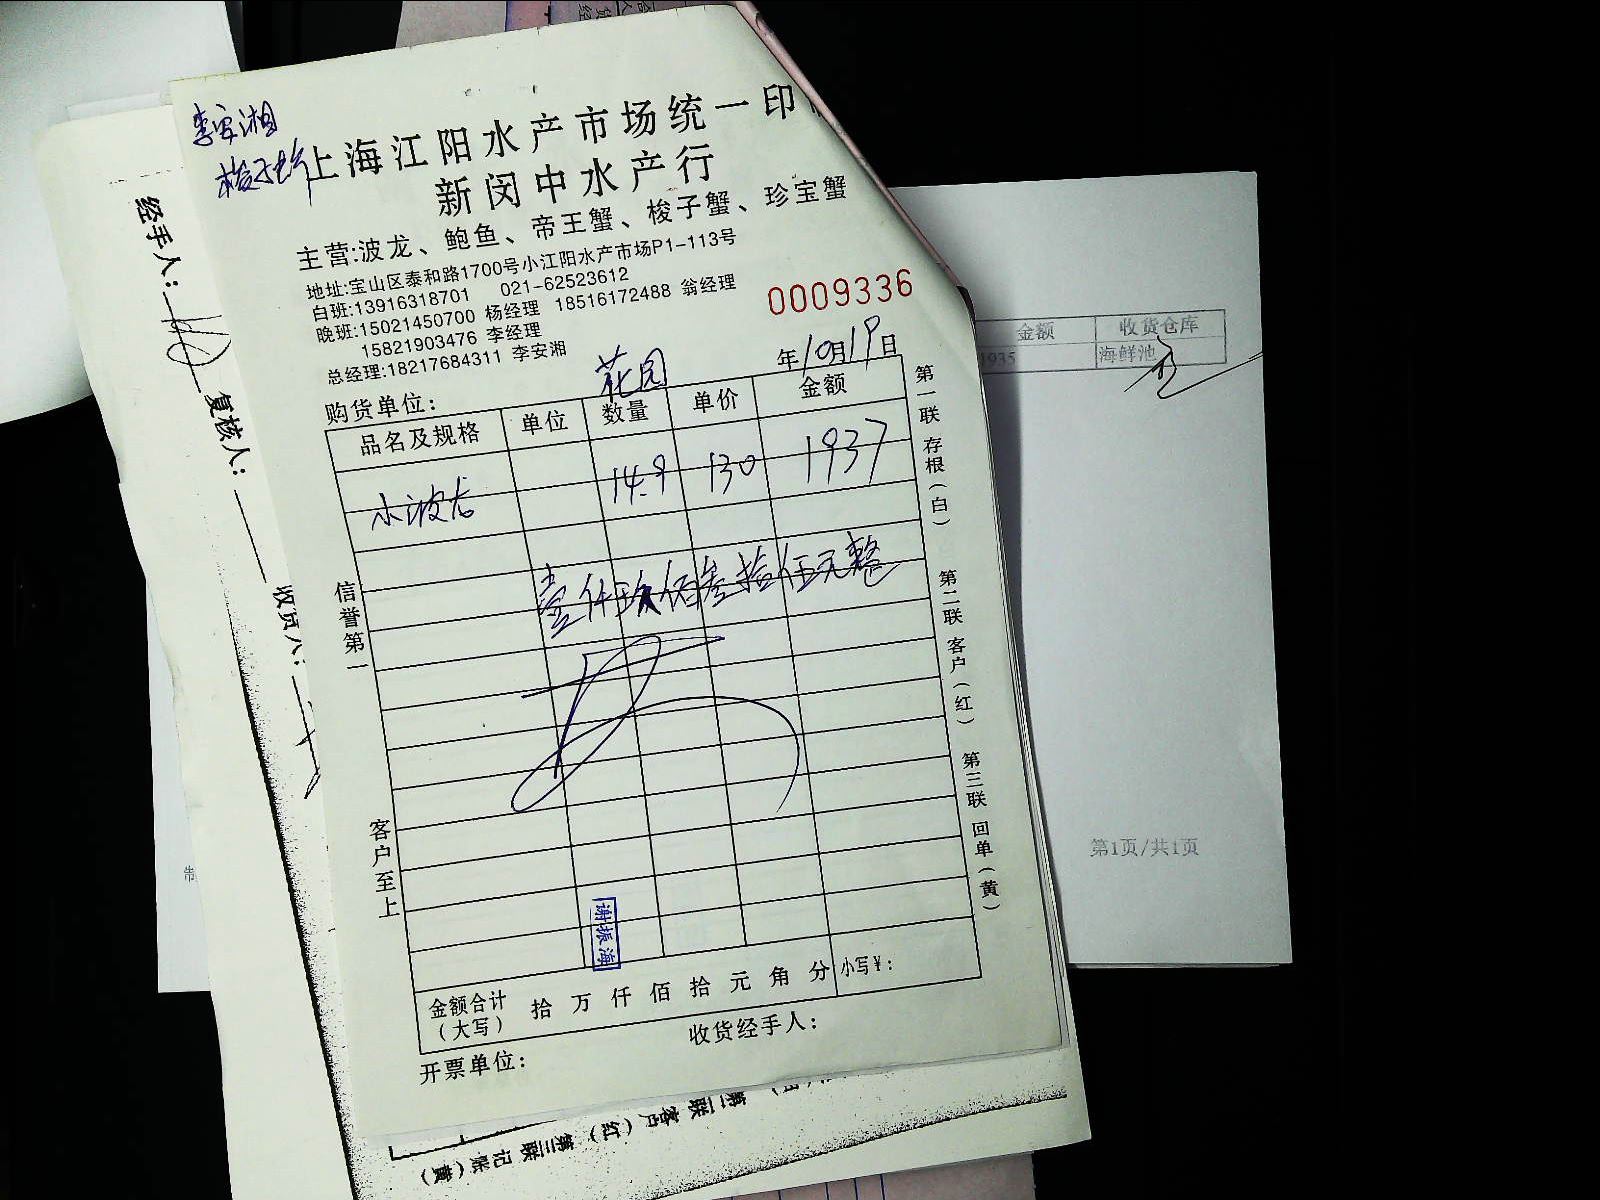 李安湘
梭子蟹
上海江阳水产市场统一印
新闵中水产行
主营:波龙、鲍鱼、帝王蟹、梭子蟹、珍宝蟹
地址:宝山区泰和路1700号小江阳水产市场P1-113号
白班:13916318701 021-62523612
晚班:15021450700 杨经理 18516172488 翁经理
15821903476 李经理
总经理:18217684311 李安湘
0009336
年10月19日
购货单位: 花园
品名及规格 单位 数量 单价 金额
小波龙 14.9 130 1937
壹仟玖佰叁拾伍元整
信誉第一
客户至上
谢振海
金额合计(大写) 拾 万 仟 佰 拾 元 角 分 小写¥:
开票单位: 收货经手人:
第一联 存根(白) 第二联 客户(红) 第三联 回单(黄)
经手人:
复核人:
收货人:
金额 收货仓库
1935 海鲜池
第1页/共1页
制
第二联 客户(红) 第三联 记账(黄)